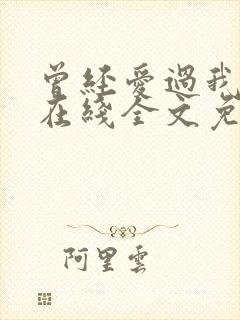 曾經愛過我
在綫全文免
阿里雲